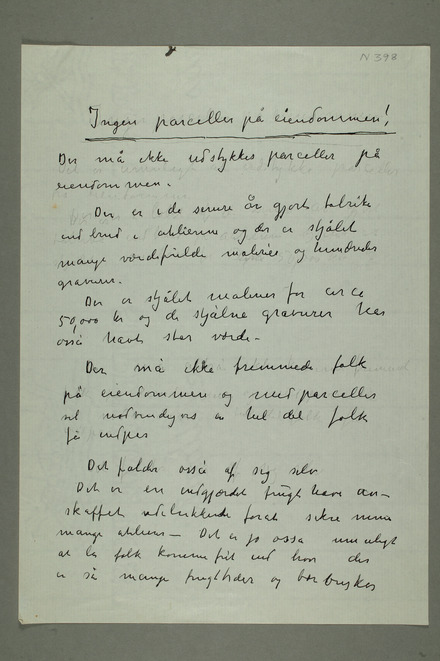 N 398
Ingen parceller på eiendommen!
Der må ikke udstykkes parceller på
eiendommen.
Der er i de senere år gjort talrike
indbrud i atelierne og der er stjålet
mange værdifulde malerier og hundreder
gravurer.
Der er stjålet malerier for circa
50,000 kr og de stjålne gravurer har
også havt stor værde.
Der må ikke fremmede folk
på eiendommen og med parceller
vil nødvendigvis en hel del folk
få indpas
Det falder også af sig selv
Det er en indgjærdet frugthave an-
skaffet udelukkende forat sikre mine
mange atelierer – Det er jo også umuligt
at la folk komme frit ind hvor der
er så mange frugttrær og bærbusker